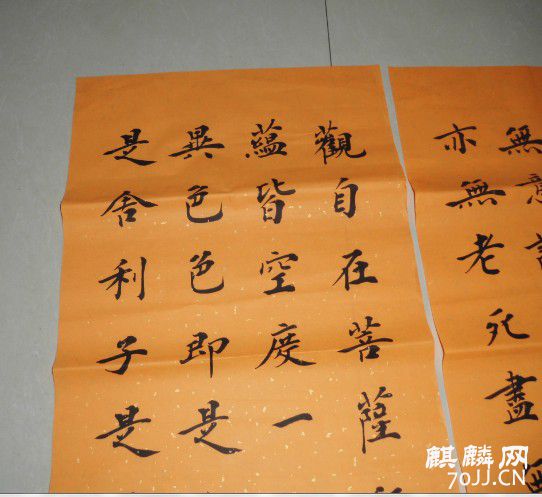 觀自在菩薩
蘊皆空度一
異色色即是
是舍利子是
無意
亦無老死盡
麒麟网
70JJ.CN